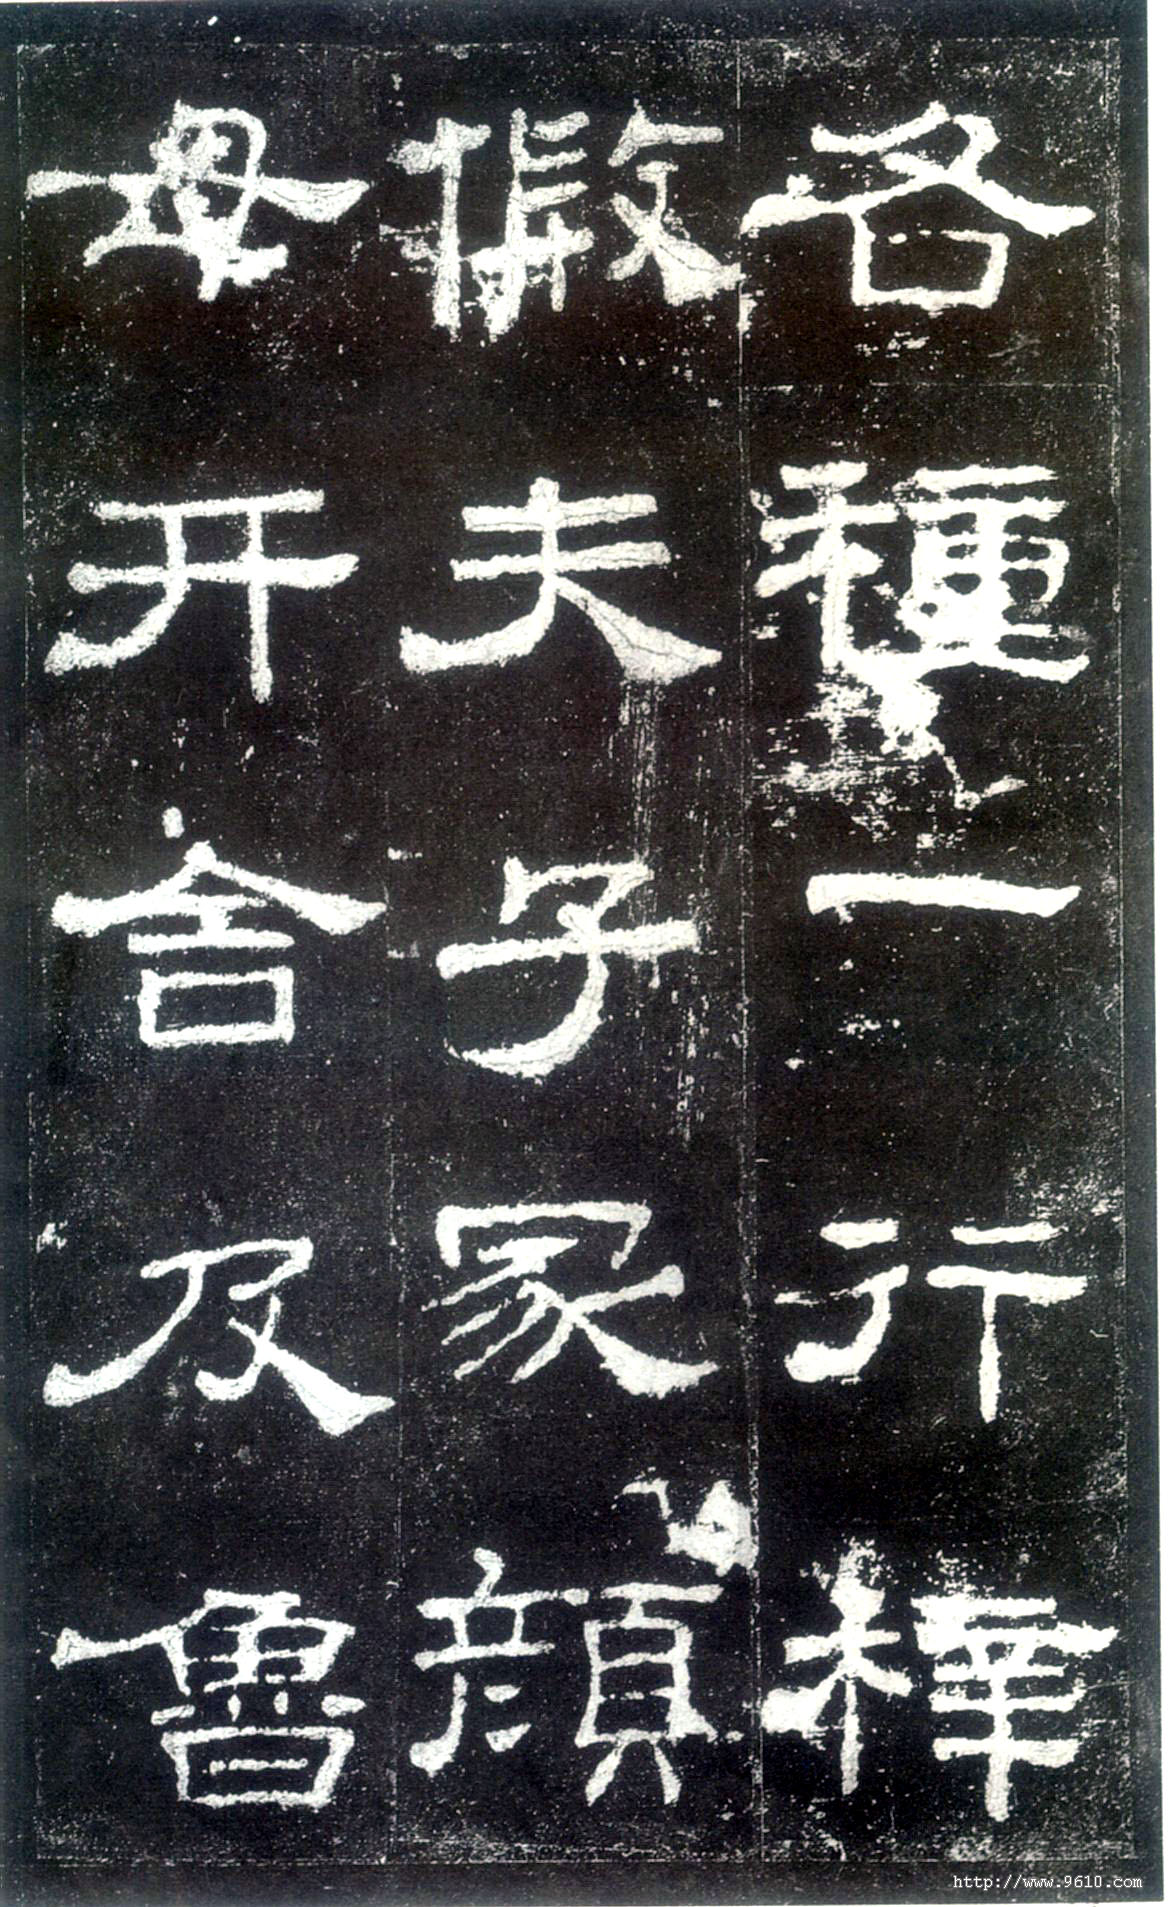 各種一行梓
假夫子冢顏
母开舍及魯
http://www.9610.com